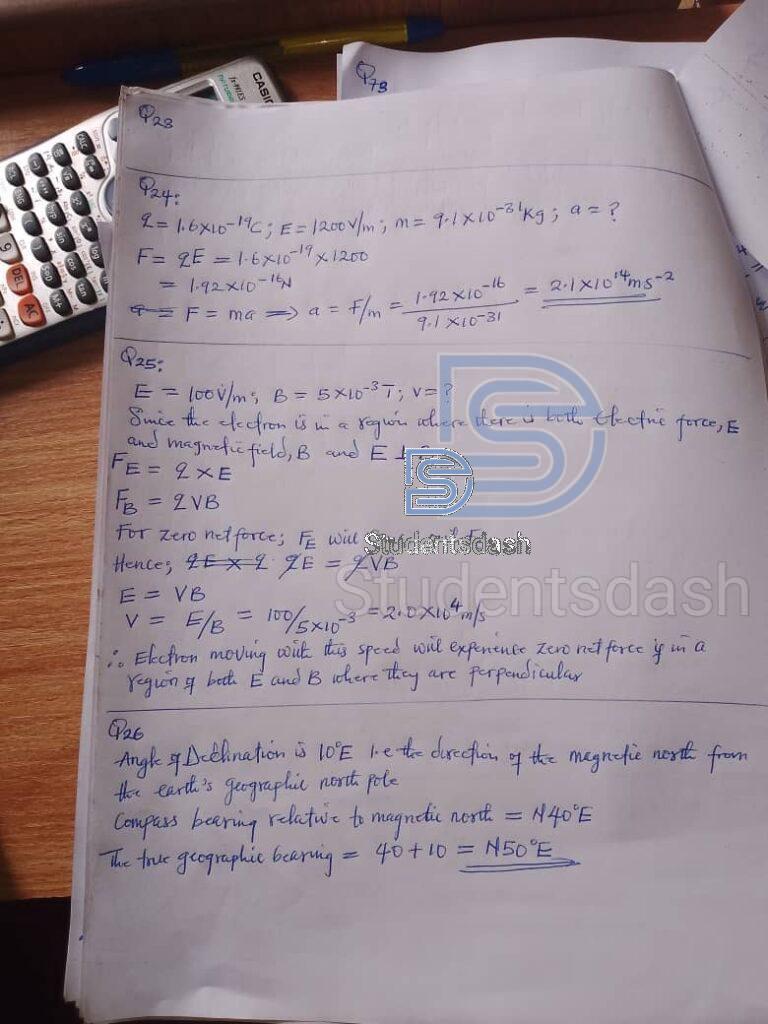 CASIO
Q73
Q23
Q24:
q = 1.6×10⁻¹⁹C; E = 1200V/m; m = 9.1×10⁻³¹Kg; a = ?
F = qE = 1.6×10⁻¹⁹×1200
= 1.92×10⁻¹⁶N
a = F = ma ⇒ a = F/m = 1.92×10⁻¹⁶ / 9.1×10⁻³¹ = 2.1×10¹⁴ms⁻²
Q25:
E = 100V/m; B = 5×10⁻³T; V = ?
Since the electron is in a region where there is both Electric force, E
and magnetic field, B and E ⊥
F_E = q×E
F_B = qVB
For zero net force; F_E will
Hence; qE × q qE = qVB
E = VB
V = E/B = 100/5×10⁻³ = 2.0×10⁴m/s
∴ Electron moving with this speed will experience zero net force if in a
region of both E and B where they are perpendicular
Q26
Angle of Declination is 10°E i.e the direction of the magnetic north from
the earth's geographic north pole
Compass bearing relative to magnetic north = N40°E
The true geographic bearing = 40+10 = N50°E
Studentsdash
Studentsdash